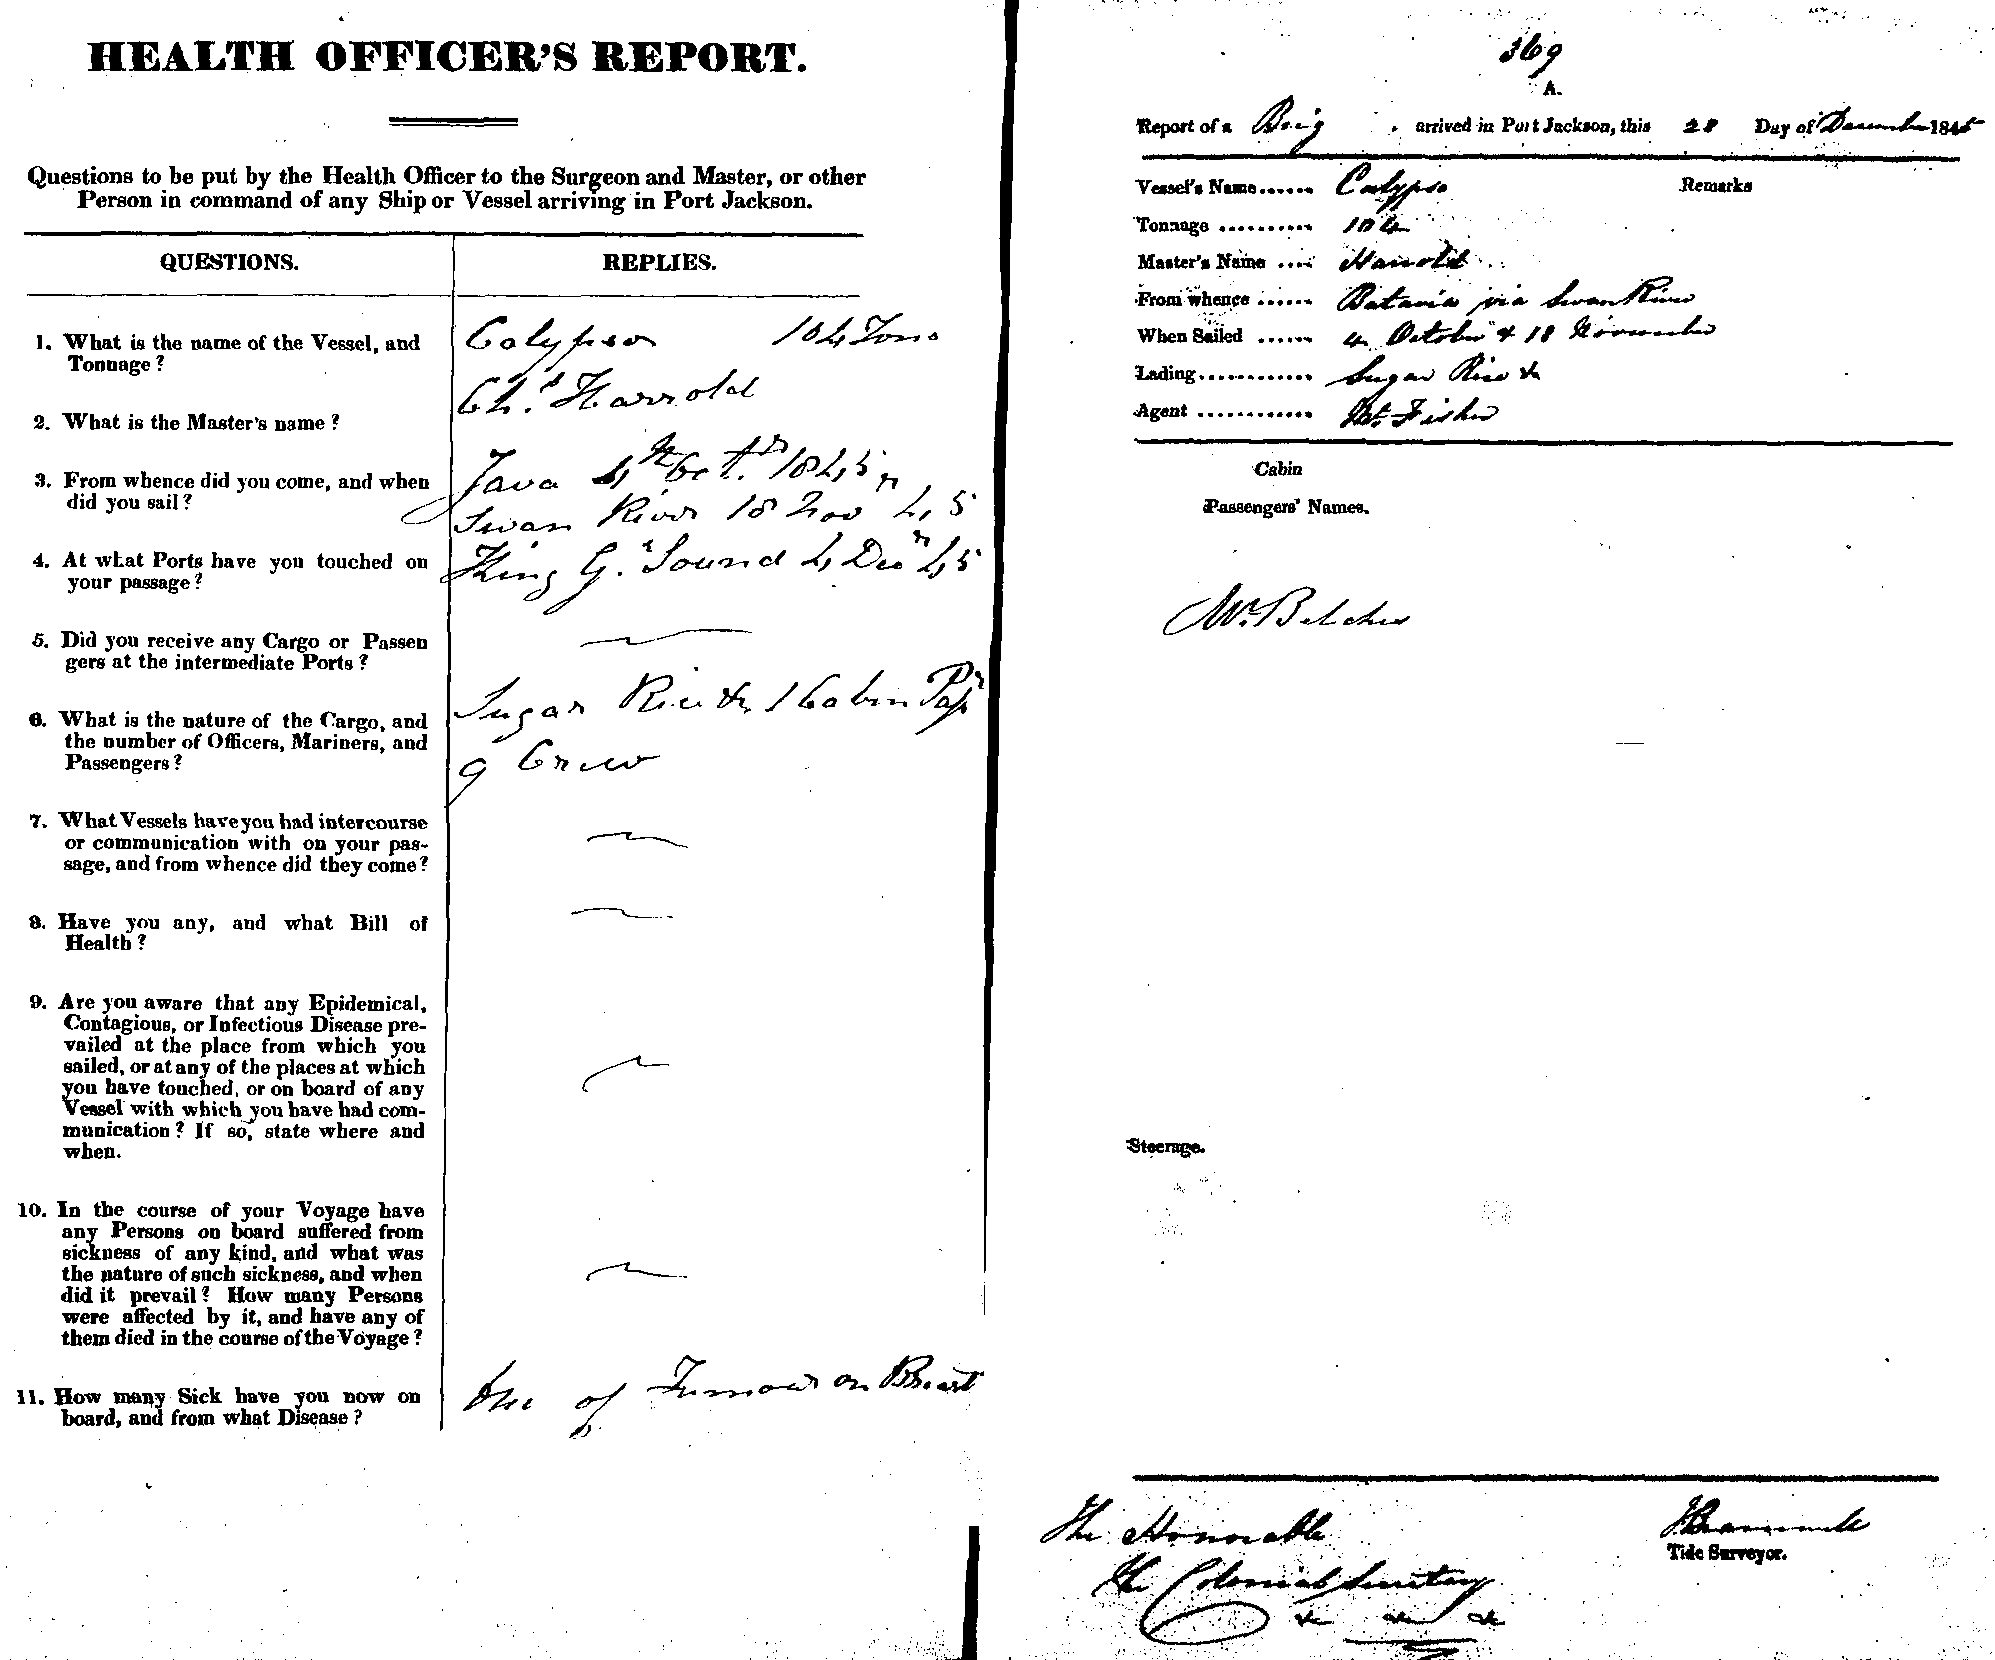 HEALTH OFFICER'S REPORT.
Questions to be put by the Health Officer to the Surgeon and Master, or other
Person in command of any Ship or Vessel arriving in Port Jackson.
QUESTIONS. REPLIES.
1. What is the name of the Vessel, and
Tonnage?
Calypso 104 Tons
2. What is the Master's name?
Chs. Harrold
3. From whence did you come, and when
did you sail?
Java 4th Octr. 1845
Swan River 18 Novr 45
4. At what Ports have you touched on
your passage?
King G.s Sound 4 Decr 45
5. Did you receive any Cargo or Passen
gers at the intermediate Ports?
6. What is the nature of the Cargo, and
the number of Officers, Mariners, and
Passengers?
Sugar Rice &c 1 Cabin Passr
9 Crew
7. What Vessels have you had intercourse
or communication with on your pas-
sage, and from whence did they come?
8. Have you any, and what Bill of
Health?
9. Are you aware that any Epidemical,
Contagious, or Infectious Disease pre-
vailed at the place from which you
sailed, or at any of the places at which
you have touched, or on board of any
Vessel with which you have had com-
munication? If so, state where and
when.
10. In the course of your Voyage have
any Persons on board suffered from
sickness of any kind, and what was
the nature of such sickness, and when
did it prevail? How many Persons
were affected by it, and have any of
them died in the course of the Voyage?
11. How many Sick have you now on
board, and from what Disease?
One of Tumour on Breast
369
A.
Report of a Brig arrived in Port Jackson, this 28 Day of December 1845
Vessel's Name...... Calypso Remarks
Tonnage .......... 104
Master's Name .... Harrold
From whence ...... Batavia via Swan River
When Sailed ...... 4 October & 18 November
Lading............ Sugar Rice &c
Agent ............ Mr. Fisher
Cabin
Passengers' Names.
Mr. Belcher
Steerage.
The Honorable
The Colonial Secretary
&c &c &c
Tide Surveyor.